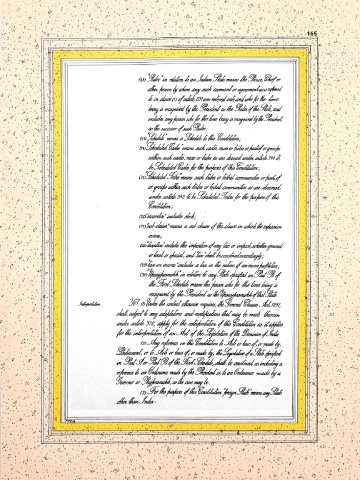 165
"Ruler" in relation to an Indian State means the Prince, Chief or
other person by whom any such covenant or agreement as is referred
to in clause (1) of article 291 was entered into and who for the time
being is recognised by the President as the Ruler of the State, and
includes any person who for the time being is recognised by the President
as the successor of such Ruler;
"Schedule" means a Schedule to this Constitution;
"Scheduled Castes" means such castes, races or tribes or parts of or groups
within such castes, races or tribes as are deemed under article 341 to
be Scheduled Castes for the purposes of this Constitution;
"Scheduled Tribes" means such tribes or tribal communities or parts of
or groups within such tribes or tribal communities as are deemed
under article 342 to be Scheduled Tribes for the purposes of this
Constitution;
"securities" includes stock;
"sub-clause" means a sub-clause of the clause in which the expression
occurs;
"taxation" includes the imposition of any tax or impost, whether general
or local or special, and "tax" shall be construed accordingly;
"tax on income" includes a tax in the nature of an excess profits tax;
"Uparajpramukh" in relation to any State specified in Part B of
the First Schedule means the person who for the time being is
recognised by the President as the Uparajpramukh of that State.
Interpretation.
367. (1) Unless the context otherwise requires, the General Clauses Act, 1897,
shall, subject to any adaptations and modifications that may be made therein
under article 372, apply for the interpretation of this Constitution as it applies
for the interpretation of an Act of the Legislature of the Dominion of India.
(2) Any reference in this Constitution to Acts or laws of, or made by,
Parliament, or to Acts or laws of, or made by, the Legislature of a State specified
in Part A or Part B of the First Schedule, shall be construed as including a
reference to an Ordinance made by the President or, to an Ordinance made by a
Governor or Rajpramukh, as the case may be.
(3) For the purposes of this Constitution "foreign State" means any State
other than India: